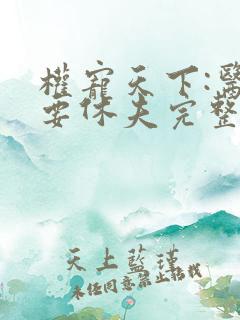 權寵天下:醫
要休夫完整
天上藍瑾
未经同意禁止转载